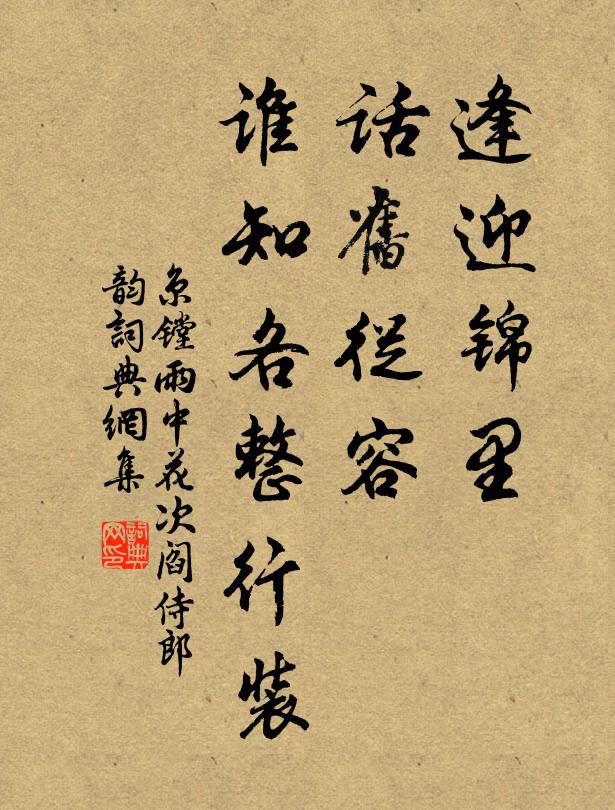 逢迎锦里
话舊從容
谁知各整行装
京镗雨中花次阎侍郎
韵詞典網集
詞典网印